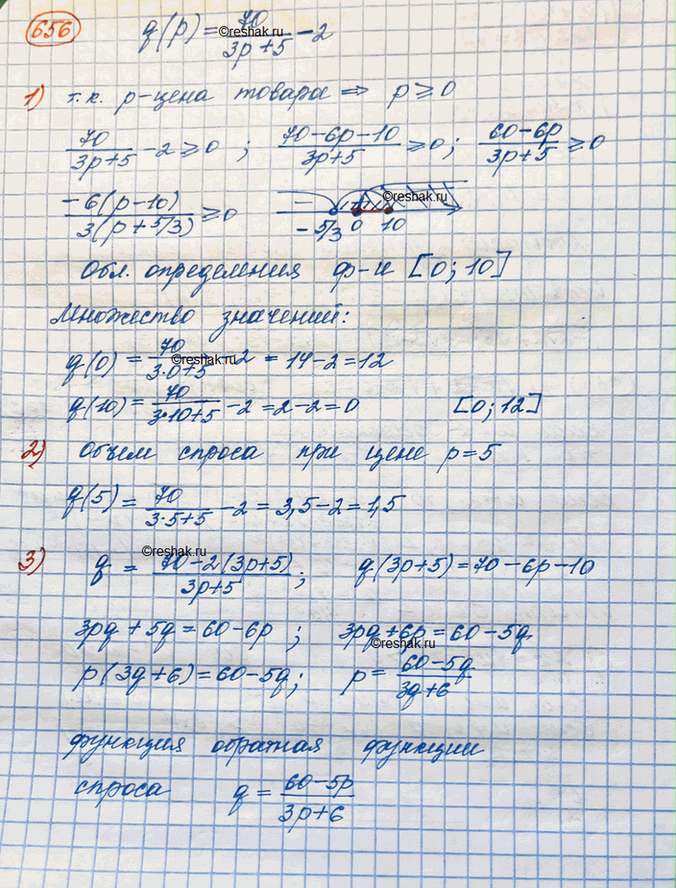 656 q(p) = 70/(3p+5) - 2
©reshak.ru
1) т.к. p-цена товара ⇒ p ≥ 0
70/(3p+5) - 2 ≥ 0 ; (70-6p-10)/(3p+5) ≥ 0 ; (60-6p)/(3p+5) ≥ 0
-6(p-10)/(3(p+5/3)) ≥ 0 - ©reshak.ru
-5/3 0 10
Обл. определения ф-и [0; 10]
Множество значений:
q(0) = 70/(3·0+5) - 2 = 14-2 = 12
©reshak.ru
q(10) = 70/(3·10+5) - 2 = 2-2 = 0 [0; 12]
2) Объем спроса при цене p = 5
q(5) = 70/(3·5+5) - 2 = 3,5-2 = 1,5
©reshak.ru
3) q = (70-2(3p+5))/(3p+5) ; q(3p+5) = 70-6p-10
3pq + 5q = 60-6p ; 3pq + 6p = 60-5q
©reshak.ru
p(3q+6) = 60-5q ; p = (60-5q)/(3q+6)
функция обратная функции
спроса q = (60-5p)/(3p+6)